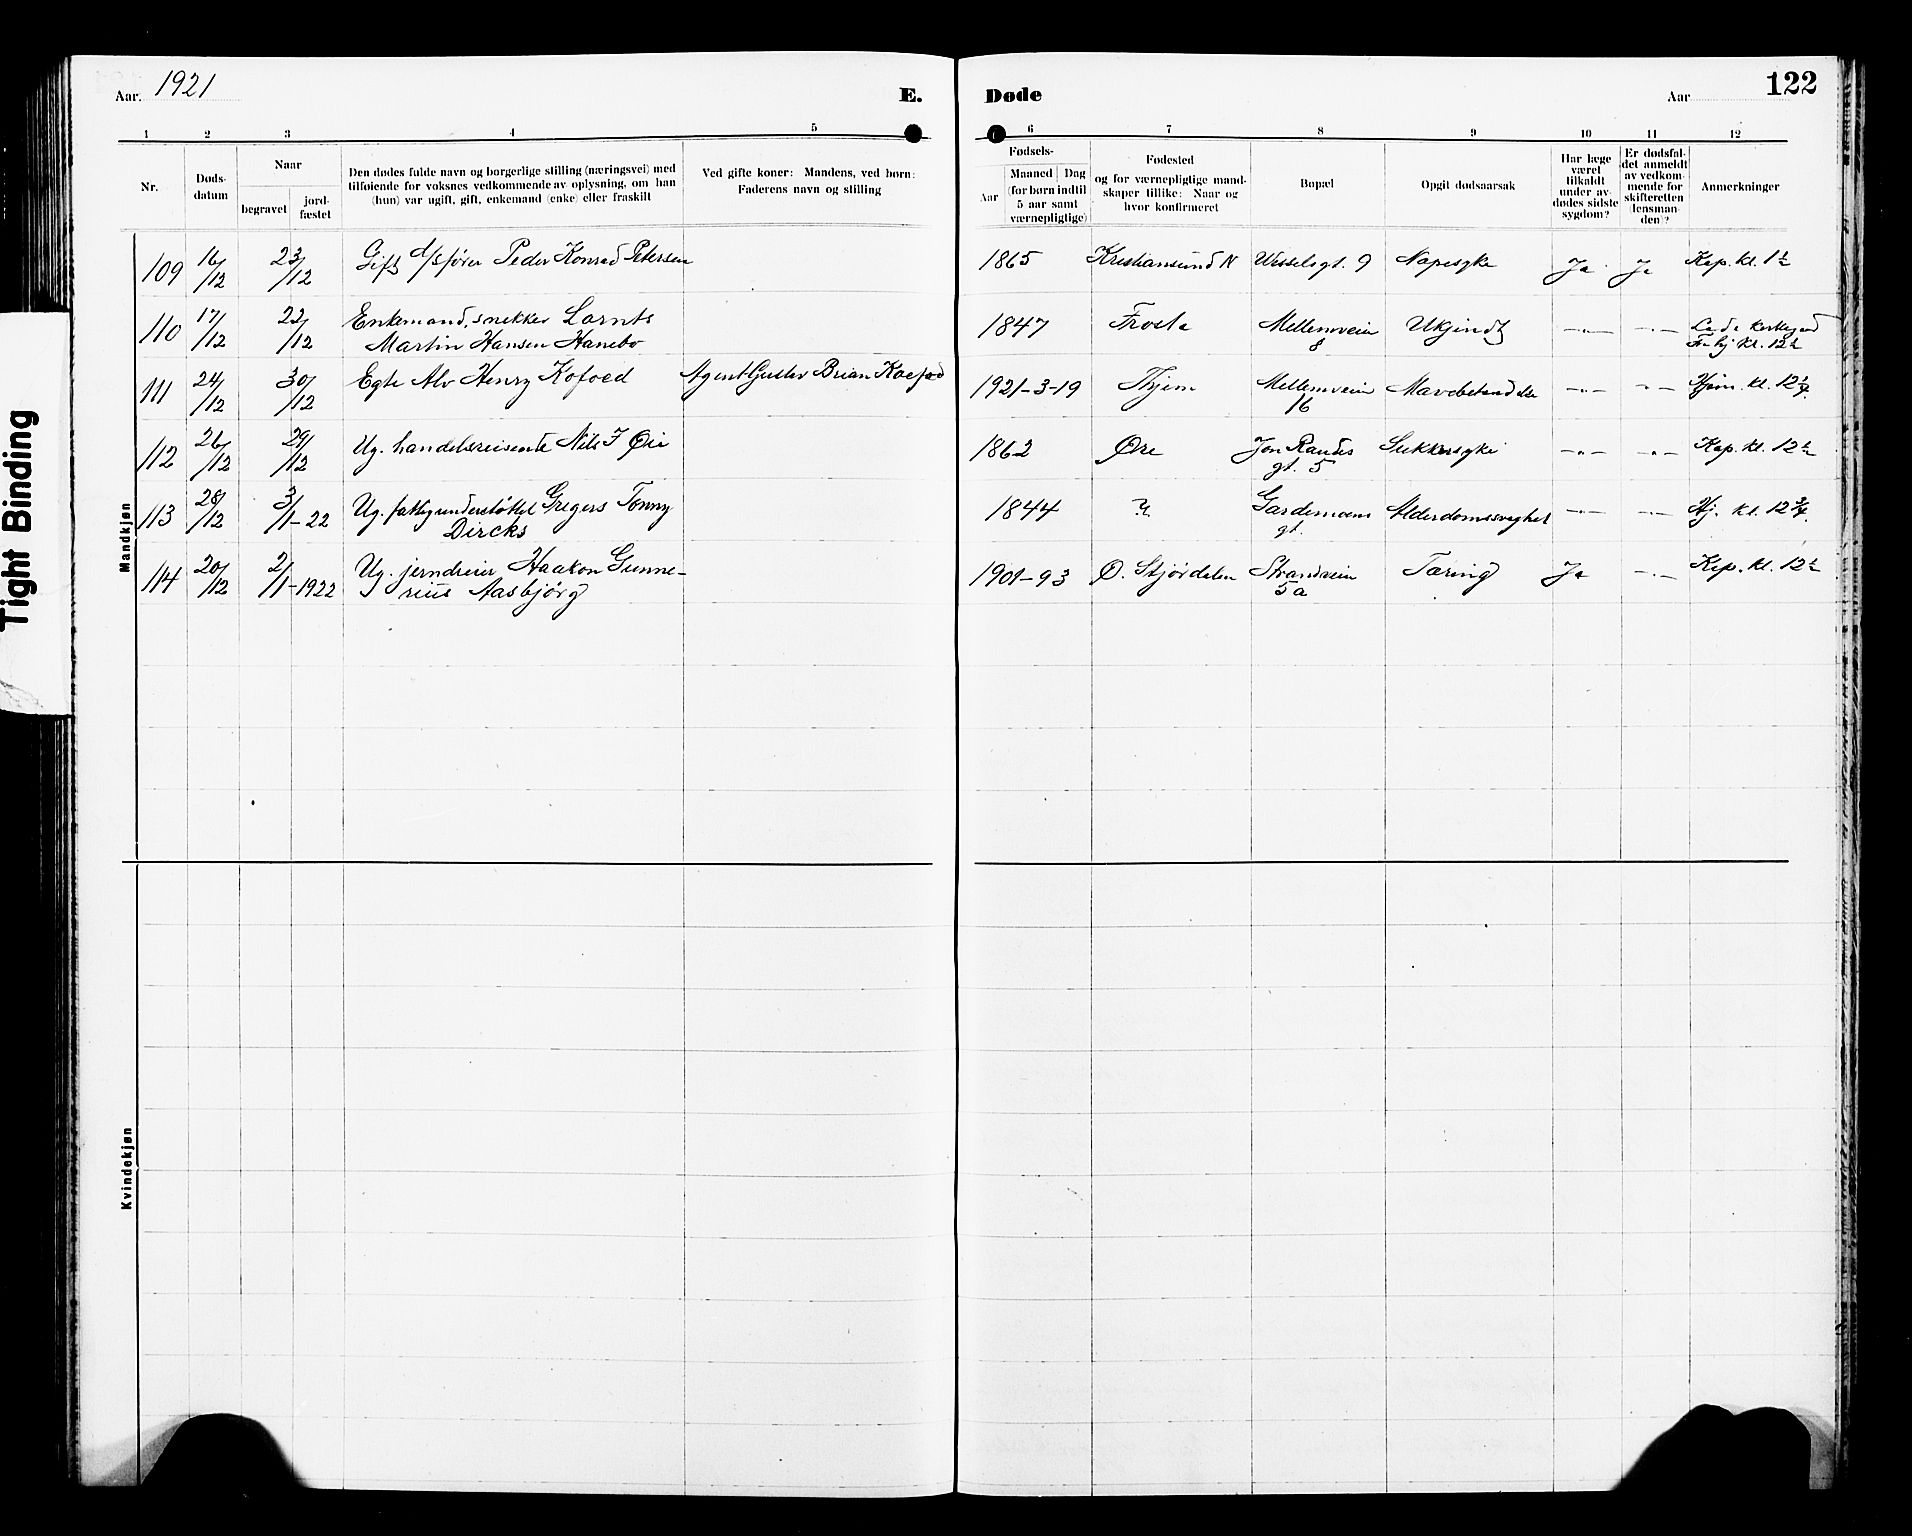 Tight Binding
Aar. 1921
E. Døde
Aar 122
1 2 3 4 5 6 7 8 9 10 11 12
Nr.
Døds-
datum
Naar
begravet
jord-
fæstet
Den dødes fulde navn og borgerlige stilling (næringsvei) med
tilføiende for voksnes vedkommende av oplysning, om han
(hun) var ugift, gift, enkemand (enke) eller fraskilt
Ved gifte koner: Mandens, ved børn:
Faderens navn og stilling
Fødsels-
Aar
Maaned Dag
(for børn indtil
5 aar samt
værnepligtige)
Fødested
og for værnepligtige mand-
skaper tillike: Naar og
hvor konfirmeret
Bopæl
Opgit dødsaarsak
Har læge
været
tilkaldt
under av-
dødes sidste
sygdom?
Er dødsfal-
det anmeldt
av vedkom-
mende for
skifteretten
(lensman-
den)?
Anmerkninger
Mandkjøn
109 16/12 23/12 Gift d/sfører Peder Konrad Petersen 1865 Kristiansund N Wesselsgt. 9 Ja Ja Kap. kl. 1½
110 17/12 22/12 Enkemand, snekker Lornts
Martin Hansen Hanebo 1847 Frosta Mellemveien
8 Ukjendt -"- -"- Lade kirkegaard
kl. 12½
111 24/12 30/12 Egte Alv Henry Kofoed Agent Gustav Brian Koefod 1921-3-19 Thjem Mellemveien
16 Mavebetændelse -"- -"- Hjem. kl. 12¼
112 26/12 29/12 Ug. handelsreisende Nils J Øie 1862 Øre Jon Raudes
gt. 5 Sukkersyke -"- -"- Kap. kl. 12½
113 28/12 3/1-22 Ug. fattigunderstøttet Gregers Tonny
Dircks 1844 ? Gardemoens
gt. Alderdomssvaghet -"- -"- Hj. kl. 12¾
114 20/12 2/1-1922 Ug. jerndreier Haakon Gunne-
rius Aasbjørg 1901-93 Ø. Stjørdalen Strandveien
5a Tæring Ja -"- Kap. kl. 12½
Kvindekjøn